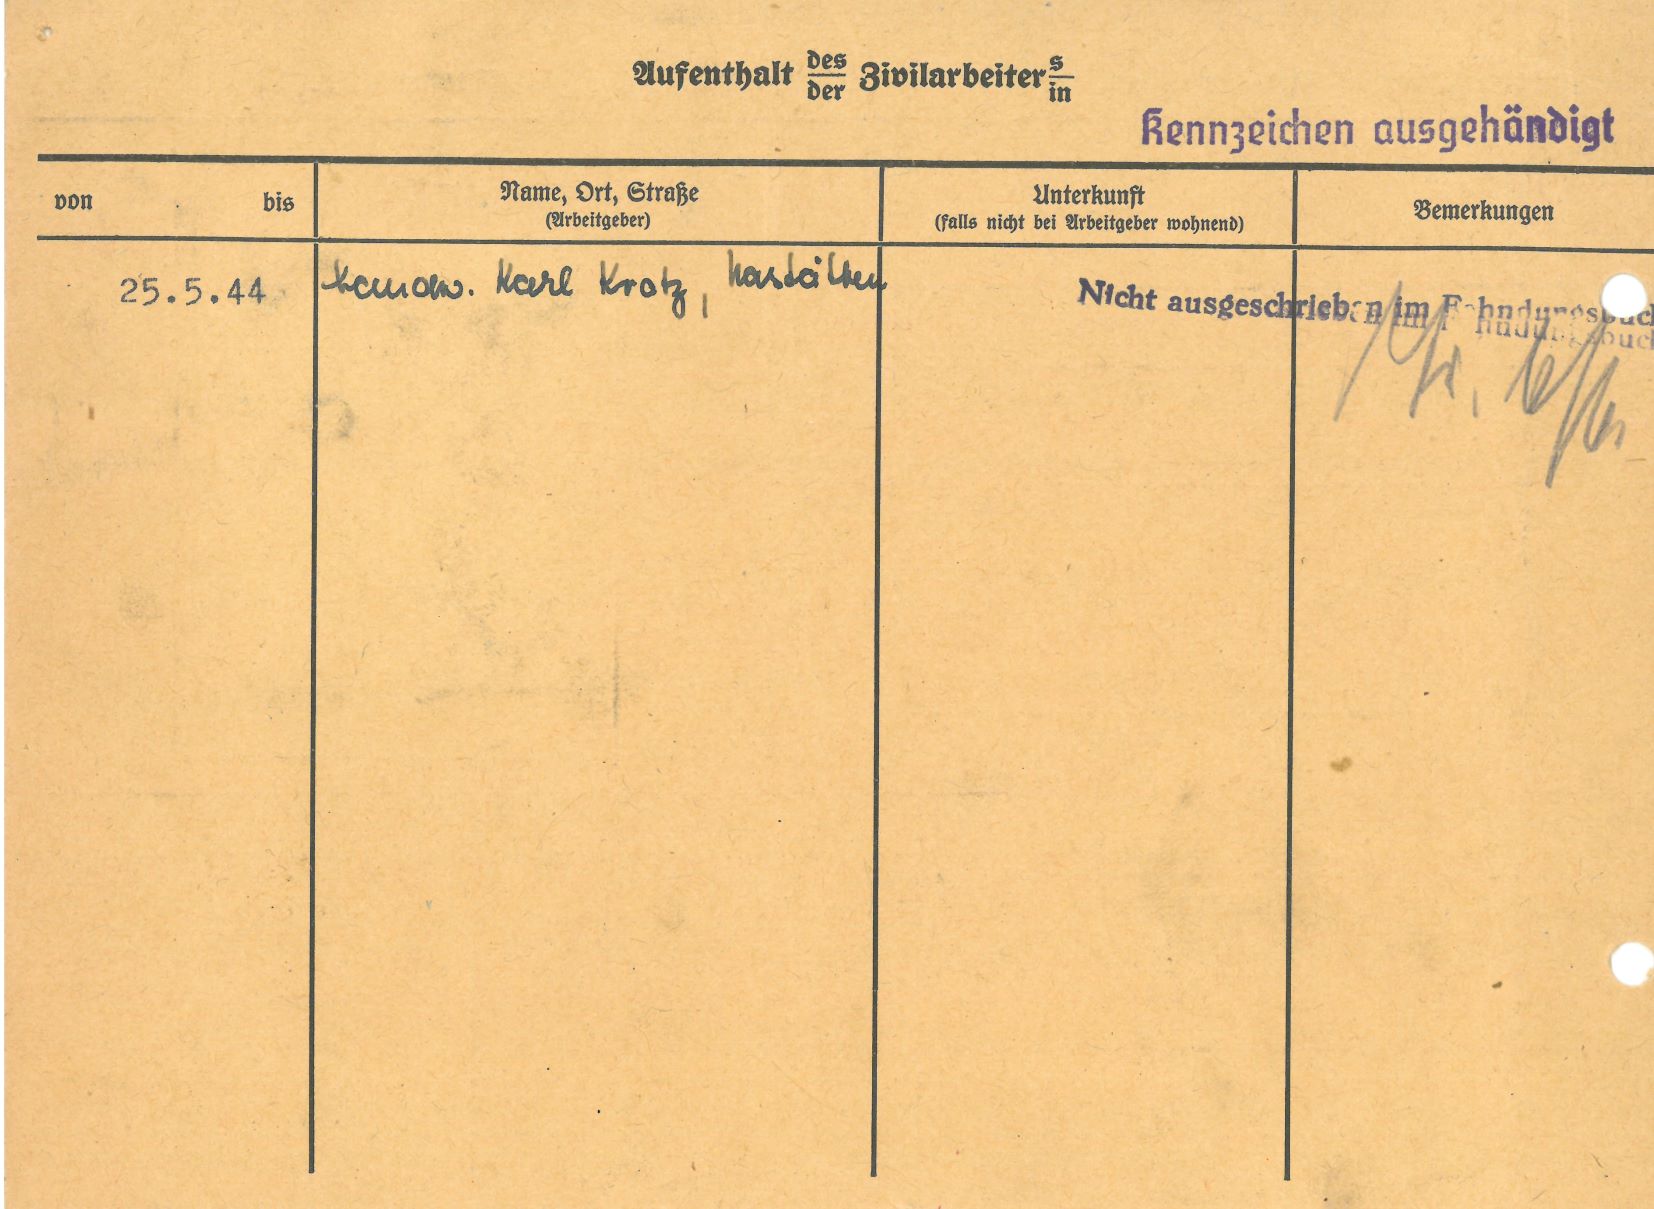 Aufenthalt des/der Zivilarbeiter s/in
Kennzeichen ausgehändigt
von bis
Name, Ort, Straße
(Arbeitgeber)
Unterkunft
(falls nicht bei Arbeitgeber wohnend)
Bemerkungen
25.5.44
Karl Kratz, Nastätten
Nicht ausgeschrieben im Fahndungsbuch